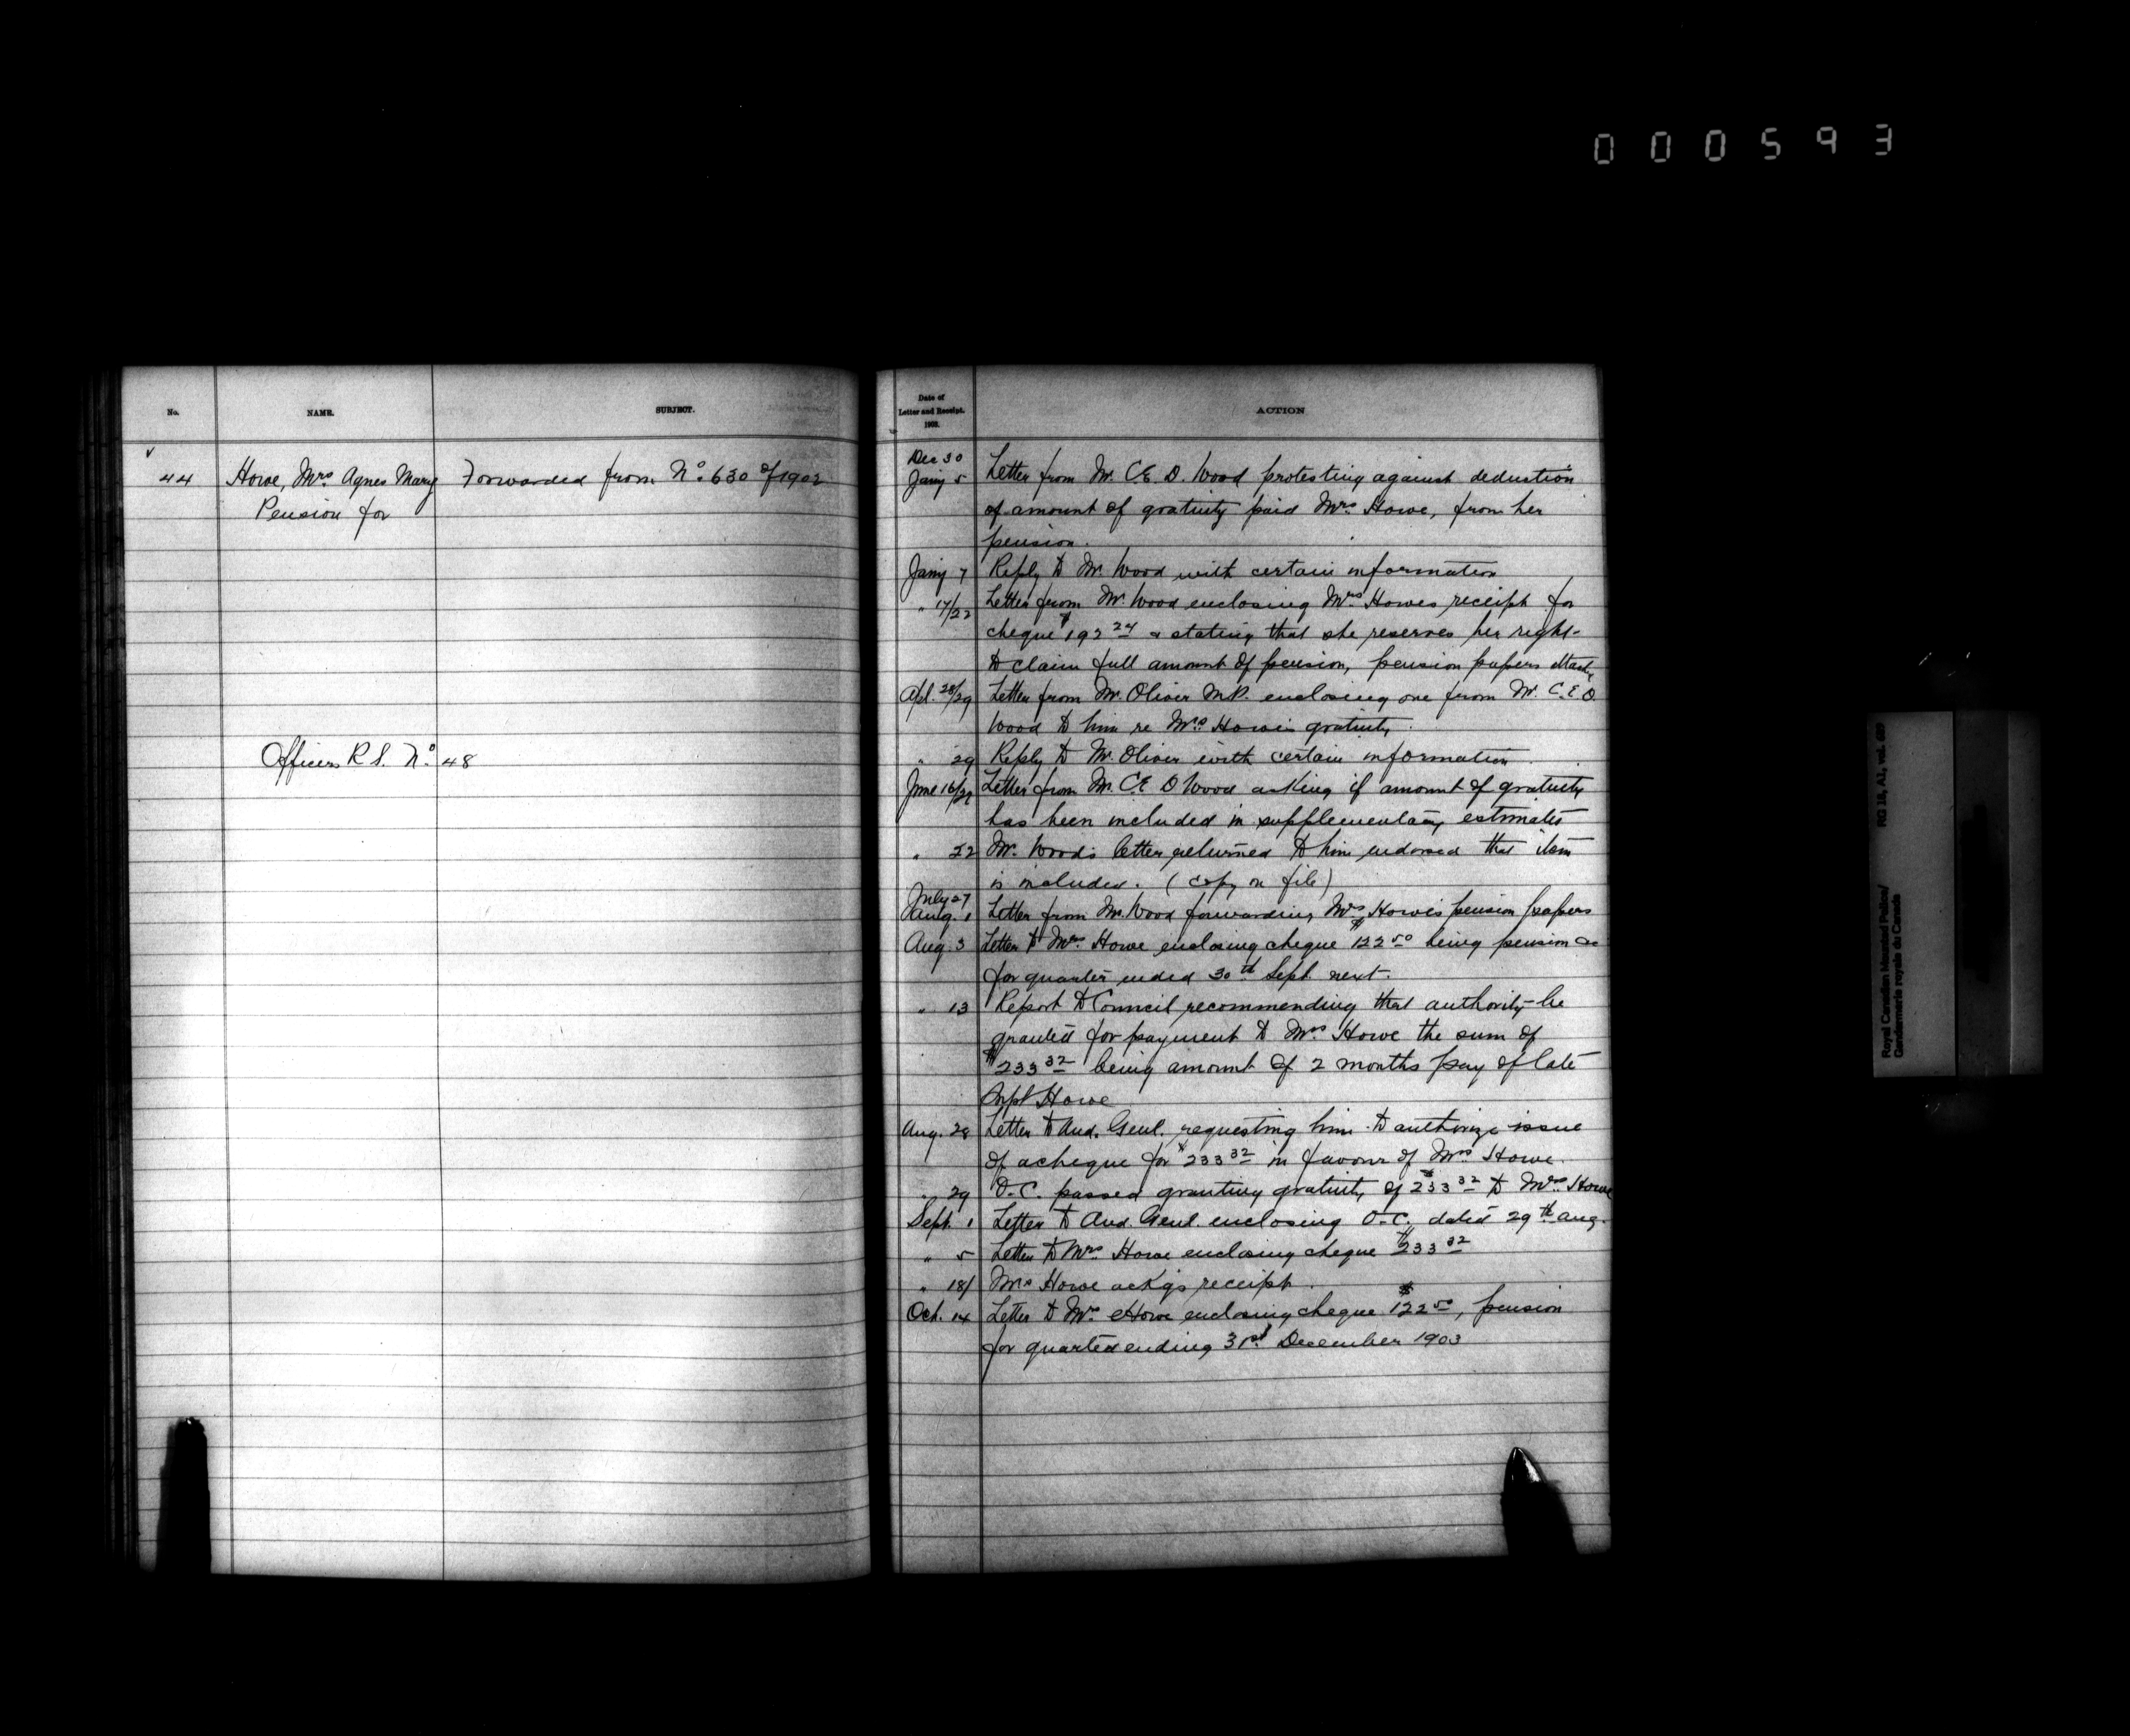 000593
No. NAME. SUBJECT.
44 Howe, Mrs Agnes Mary Forwarded from No. 630 of 1902
Pension for
Officers R S. No. 48
Date of
Letter and Receipt.
1903.
ACTION
Dec 30
Jany 5 Letter from Mr. C.E.D. Wood protesting against deduction
of amount of gratuity paid Mrs. Howe, from her
pension.
Jany 7 Reply to Mr. Wood with certain information
" 17/22 Letter from Mr. Wood enclosing Mrs Howes receipt for
cheque $192 24 & stating that she reserves her right
to claim full amount of pension, pension papers attach
Apl. 28/29 Letter from Mr. Oliver M.P. enclosing one from Mr. C.E.D.
Wood to him re Mrs. Howe's gratuity.
" 29 Reply to Mr. Oliver with certain information.
June 16/22 Letter from Mr. C.E.D Wood asking if amount of gratuity
has been included in supplementary estimates
" 22 Mr. Wood's letter returned to him endorsed that item
is included. (copy on file)
July 27
Aug. 1 Letter from Mr. Wood forwarding Mrs. Howe's pension papers
Aug. 3 Letter to Mrs. Howe enclosing cheque $122 50 being pension
for quarter ended 30th Sept. next.
" 13 Report to Council recommending that authority be
granted for payment to Mrs Howe the sum of
$233 32 being amount of 2 months pay of late
Supt Howe
Aug. 28 Letter to Aud. Genl. requesting him to authorize issue
of a cheque for $233 32 in favour of Mrs Howe.
" 29 O.C. passed granting gratuity of $233 32 to Mrs. Howe
Sept. 1 Letter to Aud. Genl. enclosing O-C. dated 29th Aug.
" 5 Letter to Mrs. Howe enclosing cheque $233 32
" 18/ Mrs Howe ackgs receipt.
Oct. 14 Letter to Mrs. Howe enclosing cheque $122 50, pension
for quarter ending 31st December 1903
Royal Canadian Mounted Police/
Gendarmerie royale du Canada
RG 18, A1, vol.